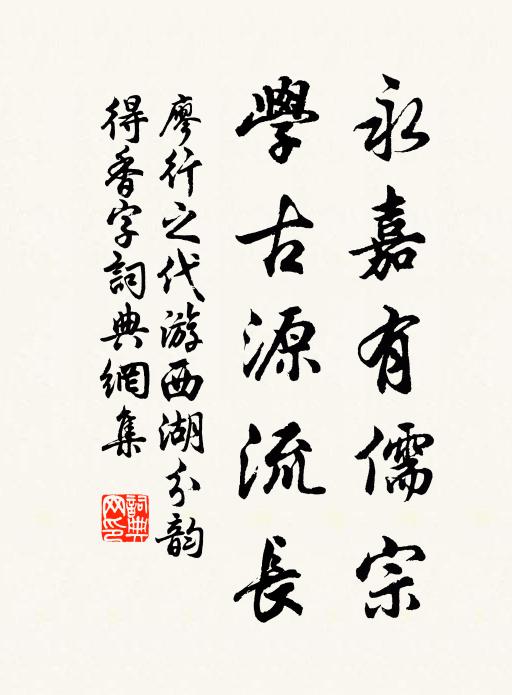 永嘉有儒宗
學古源流長
廖行之代游西湖分韵
得香字詞典網集
詞典网印